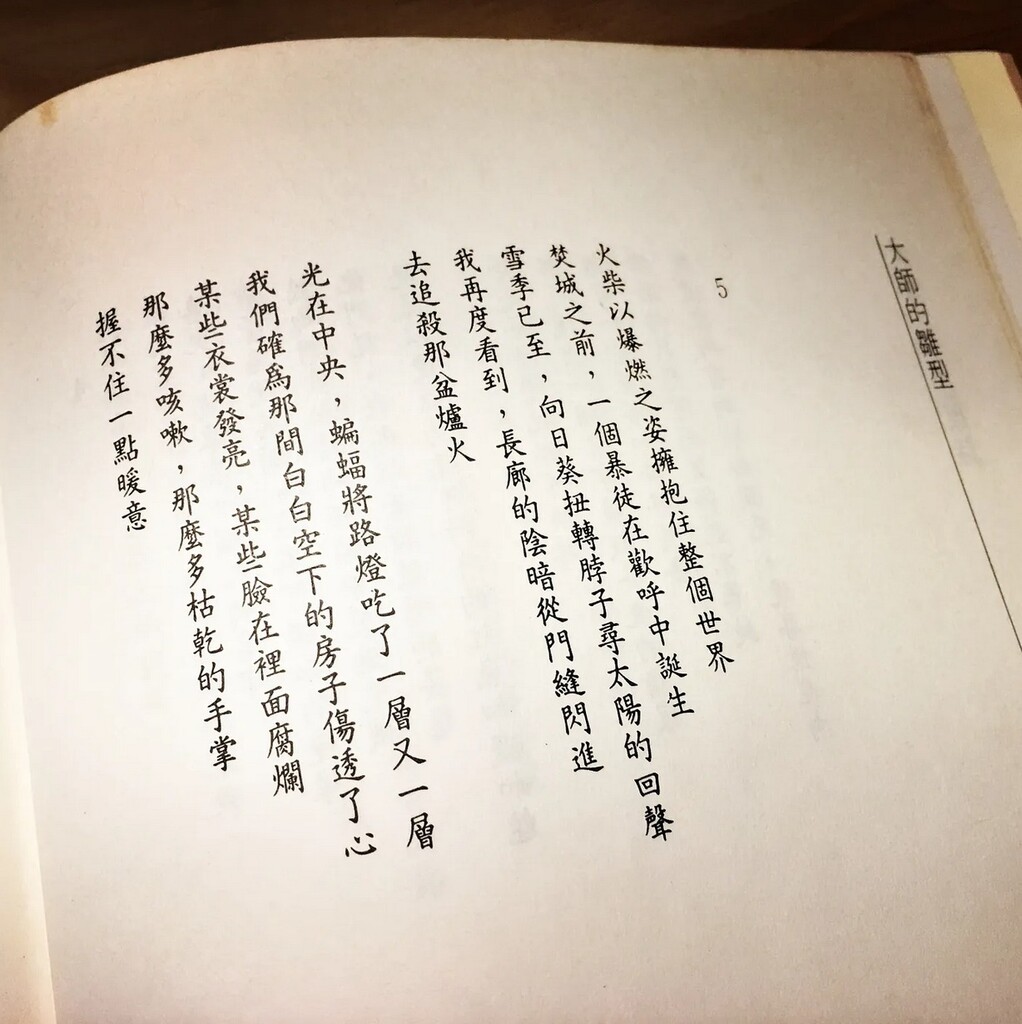 大師的雛型
5
火柴以爆燃之姿擁抱住整個世界
焚城之前，一個暴徒在歡呼中誕生
雪季已至，向日葵扭轉脖子尋太陽的回聲
我再度看到，長廊的陰暗從門縫閃進
去追殺那盆爐火
光在中央，蝙蝠將路燈吃了一層又一層
我們確爲那間白白空下的房子傷透了心
某些衣裳發亮，某些臉在裡面腐爛
那麼多咳嗽，那麼多枯乾的手掌
握不住一點暖意